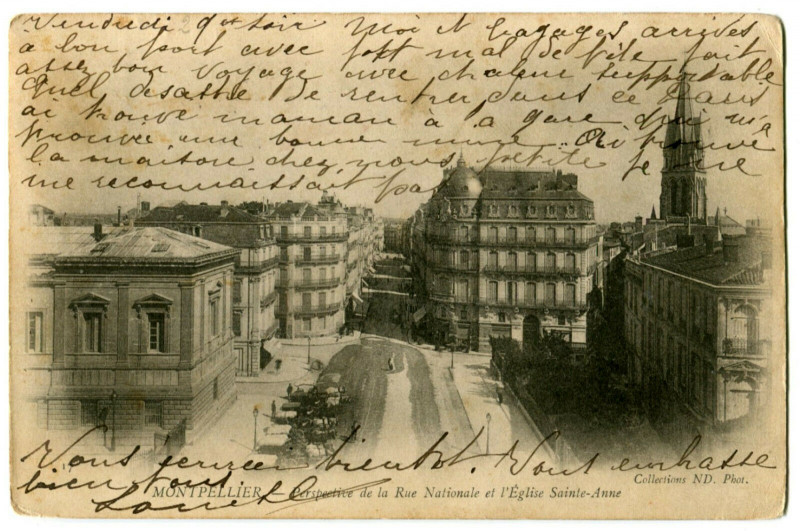 Vendredi 9h soir Moi et bagages arrivés
à bon port avec pas mal de fait
assez bon voyage avec chaleur supportable
quel désastre de rentrer dans ce Paris
ai trouvé maman à a gare qui m'a
trouvée une bonne mine. Ai trouvé
la maison chez nous petite je ne
me reconnaissait pas
Vous écrirai bientôt. Vous embrasse
bien tous.
Collections ND. Phot.
MONTPELLIER. — Perspective de la Rue Nationale et l'Église Sainte-Anne